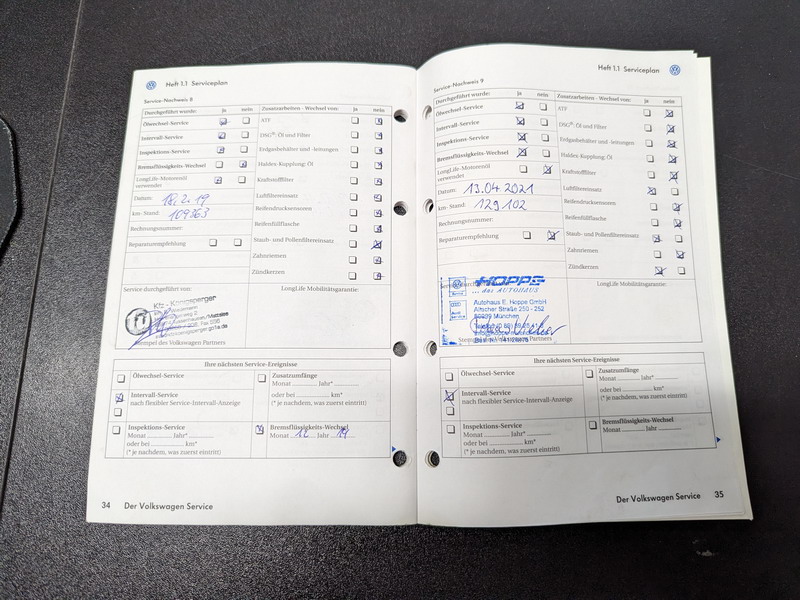 Heft 1.1 Serviceplan
Service-Nachweis 8
Durchgeführt wurde: ja nein
Ölwechsel-Service
Intervall-Service
Inspektions-Service
Bremsflüssigkeits-Wechsel
LongLife-Motorenöl
verwendet
Datum: 18.2.19
km-Stand: 109563
Rechnungsnummer:
Reparaturempfehlung
Zusatzarbeiten - Wechsel von: ja nein
ATF
DSG®: Öl und Filter
Erdgasbehälter und -leitungen
Haldex-Kupplung: Öl
Kraftstofffilter
Luftfiltereinsatz
Reifendrucksensoren
Reifenfüllflasche
Staub- und Pollenfiltereinsatz
Zahnriemen
Zündkerzen
Service durchgeführt von:
LongLife Mobilitätsgarantie:
Stempel des Volkswagen Partners
Ihre nächsten Service-Ereignisse
Ölwechsel-Service
Intervall-Service
nach flexibler Service-Intervall-Anzeige
Inspektions-Service
Monat Jahr*
oder bei km*
(* je nachdem, was zuerst eintritt)
Zusatzumfänge
Monat Jahr*
oder bei km*
(* je nachdem, was zuerst eintritt)
Bremsflüssigkeits-Wechsel
Monat 12 Jahr 19
34 Der Volkswagen Service
Heft 1.1 Serviceplan
Service-Nachweis 9
Durchgeführt wurde: ja nein
Ölwechsel-Service
Intervall-Service
Inspektions-Service
Bremsflüssigkeits-Wechsel
LongLife-Motorenöl
verwendet
Datum: 13.04.2021
km-Stand: 129102
Rechnungsnummer:
Reparaturempfehlung
Zusatzarbeiten - Wechsel von: ja nein
ATF
DSG®: Öl und Filter
Erdgasbehälter und -leitungen
Haldex-Kupplung: Öl
Kraftstofffilter
Luftfiltereinsatz
Reifendrucksensoren
Reifenfüllflasche
Staub- und Pollenfiltereinsatz
Zahnriemen
Zündkerzen
HOPPE
... das AUTOHAUS
Autohaus E. Hoppe GmbH
LongLife Mobilitätsgarantie:
Ihre nächsten Service-Ereignisse
Ölwechsel-Service
Intervall-Service
nach flexibler Service-Intervall-Anzeige
Inspektions-Service
Monat Jahr*
oder bei km*
(* je nachdem, was zuerst eintritt)
Zusatzumfänge
Monat Jahr*
oder bei km*
(* je nachdem, was zuerst eintritt)
Bremsflüssigkeits-Wechsel
Monat Jahr
Der Volkswagen Service 35